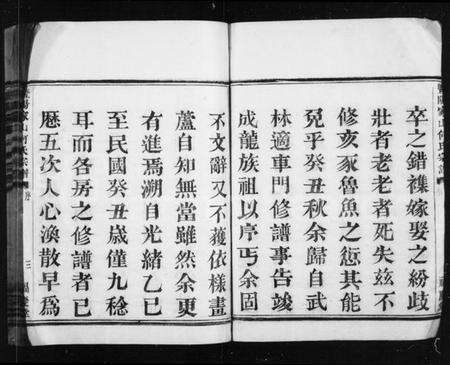 卒之錯襍嫁娶之紛歧
壯者老老者死失玆不
修亥豕魯魚之愆其能
免乎癸丑秋余歸自武
林適車門修譜事告竣
成龍族祖以序丐余固
不文辭又不蒐依樣畫
蘆自知無當雖然余更
有進焉溯自光緒乙巳
至民國癸丑歲僅九稔
耳而各房之修譜者已
歷五次人心渙散早為
三